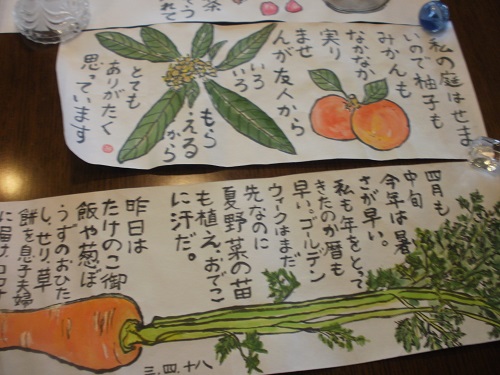 私の庭はせま
いので柚子も
みかんも
なかなか
実り
ませ
んが友人から
いろ
いろ
もら
える
から
とても
ありがたく
思っています
四月も
中旬
今年は暑
さが早い。
私も年をとって
きたのか暦も
早い。ゴールデン
ウィクはまだ
先なのに
夏野菜の苗
も植え、おでこ
に汗だ。
昨日は
たけのこ御
飯や葱ぼ
うずのおひた
し、せり、草
餅を息子夫婦
に届け、コロナ
三.四.十八